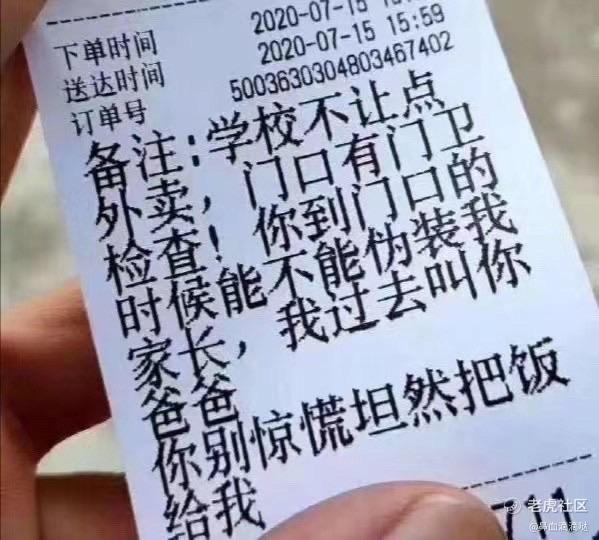 下单时间
2020-07-15
送达时间
2020-07-15 15:59
订单号
5003630304803467402
备注:学校不让点
外卖,门口有门卫
检查!你到门口的
时候能不能伪装我
家长,我过去叫你
爸爸
你别惊慌坦然把饭
给我
老虎社区
@鼻血滴滴哒